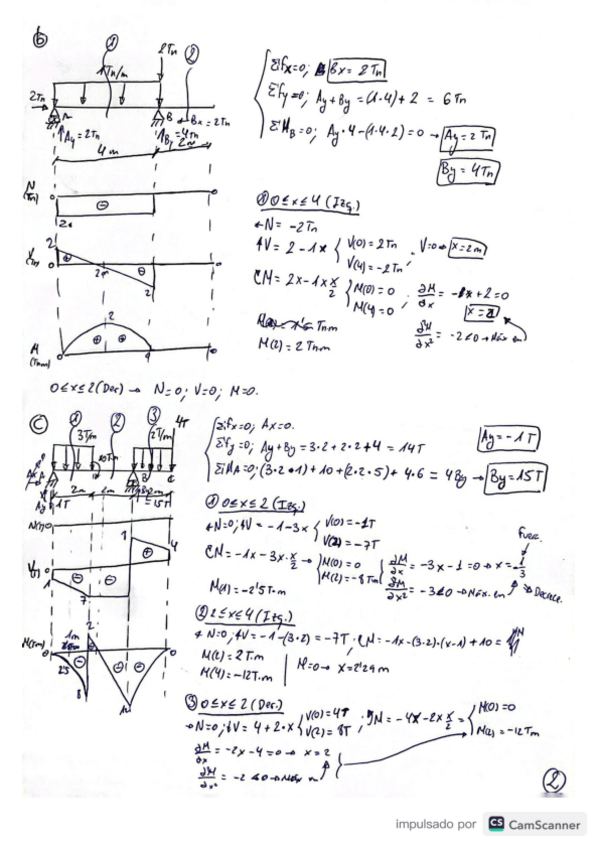 b
① ② 2Tn
1Tn/m
2Tn A B Bx = 2Tn
Ay = 2Tn By = 4Tn
4m 2m
ΣFx=0; Bx = 2Tn
ΣFy=0; Ay + By = (1·4) + 2 = 6Tn
ΣMB=0; Ay·4 - (1·4·2) = 0 → Ay = 2Tn
By = 4Tn
N (Tn) 0 ⊖ 2 0
V (Tn) 2 ⊕ 2m ⊖ 2 0
M (Tnm) 2 ⊕ ⊕ 0
① 0≤x≤4 (Izq.)
N = -2Tn
V = 2 - 1x { V(0) = 2Tn V(4) = -2Tn ; V=0 → x=2m
M = 2x - 1x x/2 { M(0) = 0 M(4) = 0 ; ∂M/∂x = -1x + 2 = 0
M(2) = 2Tnm ∂M/∂x² = -1<0 → Máx en
0≤x≤2 (Der) → N=0; V=0; M=0.
C
① ② ③ 4T
3T/m 2T/m
A B C
2m 2m 2m
Ay 1T 15T
ΣFx=0; Ax=0.
ΣFy=0; Ay + By = 3·2 + 2·2 + 4 = 14T Ay = -1T
ΣMA=0; (3·2·1) + 10 + (2·2·5) + 4·6 = 4By → By = 15T
N(T) 0
V(T) 1 ⊖ 7 ⊖ ⊕ 4
M(Tm) 0 2'5 ⊖ 8 2 ⊖ ⊖ 12 0
① 0≤x≤2 (Izq.)
N=0; V = -1 - 3x { V(0) = -1T V(2) = -7T
M = -1x - 3x·x/2 → { M(0) = 0 M(2) = -8Tm { ∂M/∂x = -3x - 1 = 0 → x = -1/3
M(1) = -2'5T·m ∂M/∂x² = -3<0 → Máx en
② 2≤x≤4 (Izq.)
N=0; V = -1 - (3·2) = -7T, M = -1x - (3·2)·(x-1) + 10 =
M(2) = 2T·m M=0 → x = 2'29m
M(4) = -12T·m
③ 0≤x≤2 (Der.)
N=0; V = 4 + 2·x { V(0) = 4T V(2) = 8T ; M = -4x - 2x x/2 = { M(0) = 0 M(2) = -12Tm
∂M/∂x = -2x - 4 = 0 → x = 2
∂M/∂x² = -2<0 → Máx en
2
impulsado por CS CamScanner